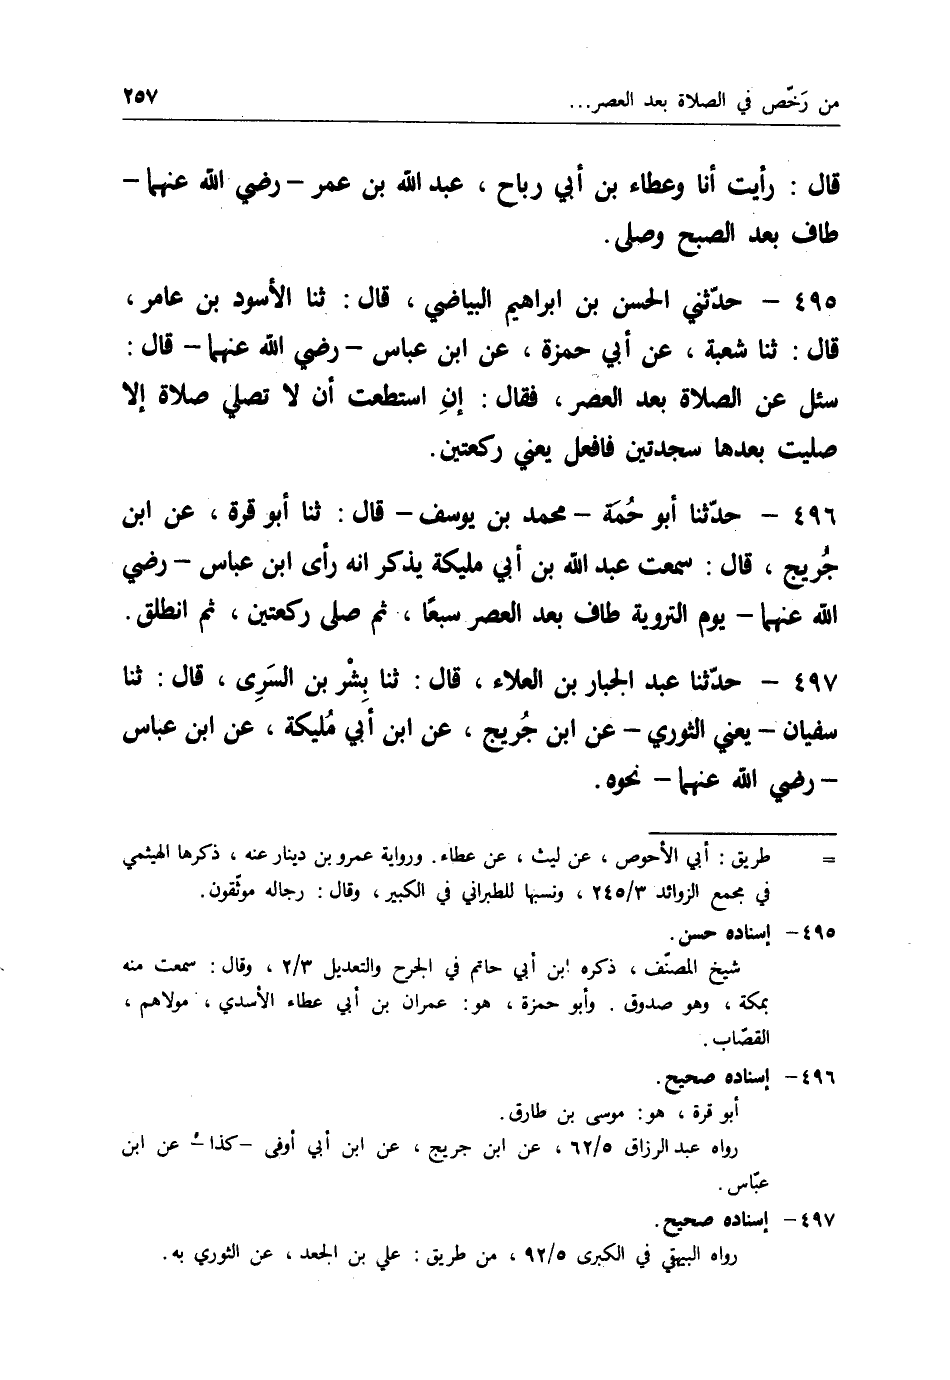 من رَخّص في الصلاة بعد العصر... ٢٥٧
قال : رأيت أنا وعطاء بن أبي رباح ، عبد الله بن عمر – رضي الله عنهما –
طاف بعد الصبح وصلى.
٤٩٥ – حدّثني الحسن بن ابراهيم البياضي ، قال : ثنا الأسود بن عامر ،
قال : ثنا شعبة ، عن أبي حمزة ، عن ابن عباس – رضي الله عنهما – قال :
سئل عن الصلاة بعد العصر ، فقال : إنِ استطعت أن لا تصلي صلاة إلا
صليت بعدها سجدتين فافعل يعني ركعتين.
٤٩٦ – حدّثنا أبو حُمَة – محمد بن يوسف – قال : ثنا أبو قرة ، عن ابن
جُريج ، قال : سمعت عبد الله بن أبي مليكة يذكر انه رأى ابن عباس – رضي
الله عنهما – يوم التروية طاف بعد العصر سبعًا ، ثم صلى ركعتين ، ثم انطلق.
٤٩٧ – حدّثنا عبد الجبار بن العلاء ، قال : ثنا بِشْر بن السَرِى ، قال : ثنا
سفيان – يعني الثوري – عن ابن جُريج ، عن ابن أبي مُليكة ، عن ابن عباس
– رضي الله عنهما – نحوه.
= طريق : أبي الأحوص ، عن ليث ، عن عطاء. ورواية عمرو بن دينار عنه ، ذكرها الهيثمي
في مجمع الزوائد ٢٤٥/٣ ، ونسبها للطبراني في الكبير ، وقال : رجاله موثّقون.
٤٩٥ – إسناده حسن.
شيخ المصنّف ، ذكره ابن أبي حاتم في الجرح والتعديل ٢/٣ ، وقال : سمعت منه
بمكة ، وهو صدوق . وأبو حمزة ، هو : عمران بن أبي عطاء الأسدي ، مولاهم ،
القصّاب.
٤٩٦ – إسناده صحيح.
أبو قرة ، هو : موسى بن طارق.
رواه عبد الرزاق ٦٢/٥ ، عن ابن جريج ، عن ابن أبي أوفى – كذا – عن ابن
عبّاس.
٤٩٧ – إسناده صحيح.
رواه البيهقي في الكبرى ٩٢/٥ ، من طريق : علي بن الجعد ، عن الثوري به.